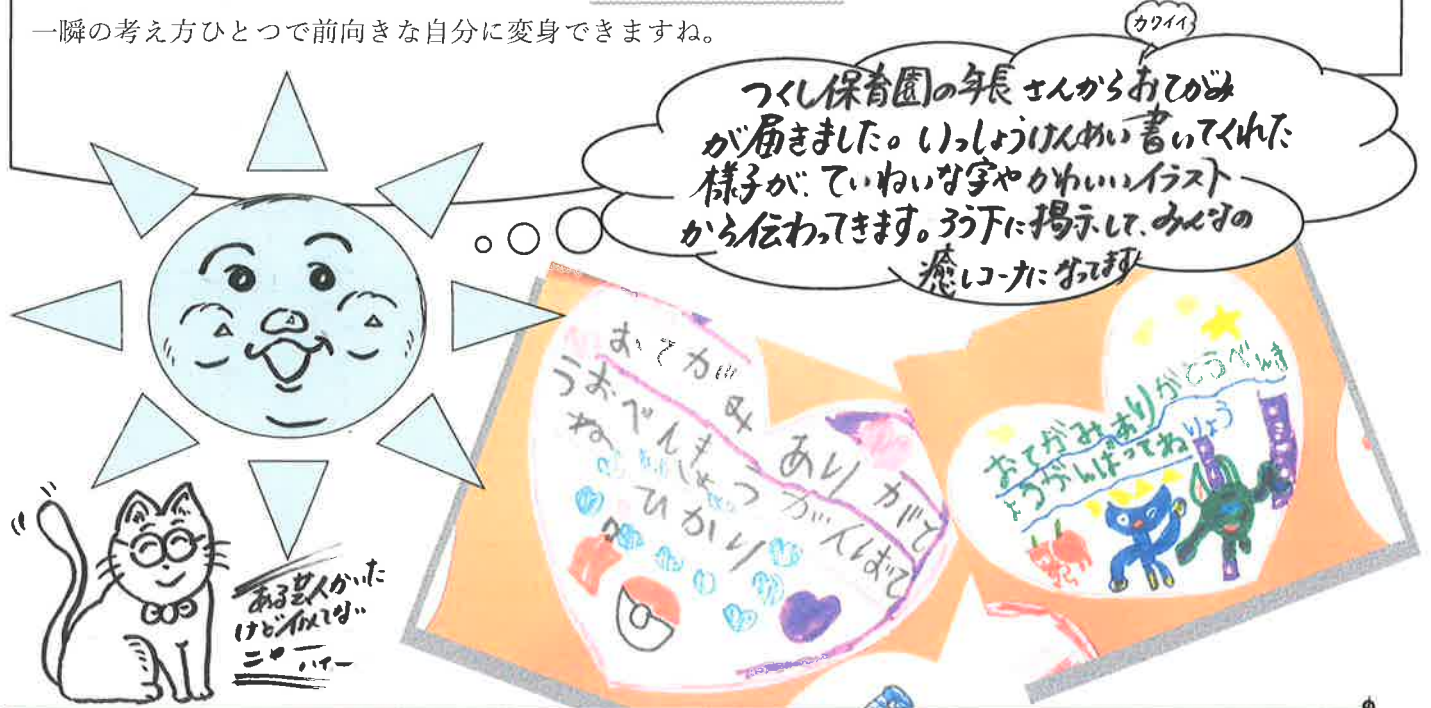 一瞬の考え方ひとつで前向きな自分に変身できますね。
カワイイ
つくし保育園の年長さんからおてがみ
が届きました。いっしょうけんめい書いてくれた
様子が、ていねいな字やかわいいイラスト
から伝わってきます。ろう下に掲示して、みんなの
癒しコーナーになってます
おてがみ ありがて
うおべんきょうがんばて
ね
ひかり
おてがみありがとうべんき
ょうがんばってねりょう
ある芸人かいた
けど似てな
ニャー
ハイー